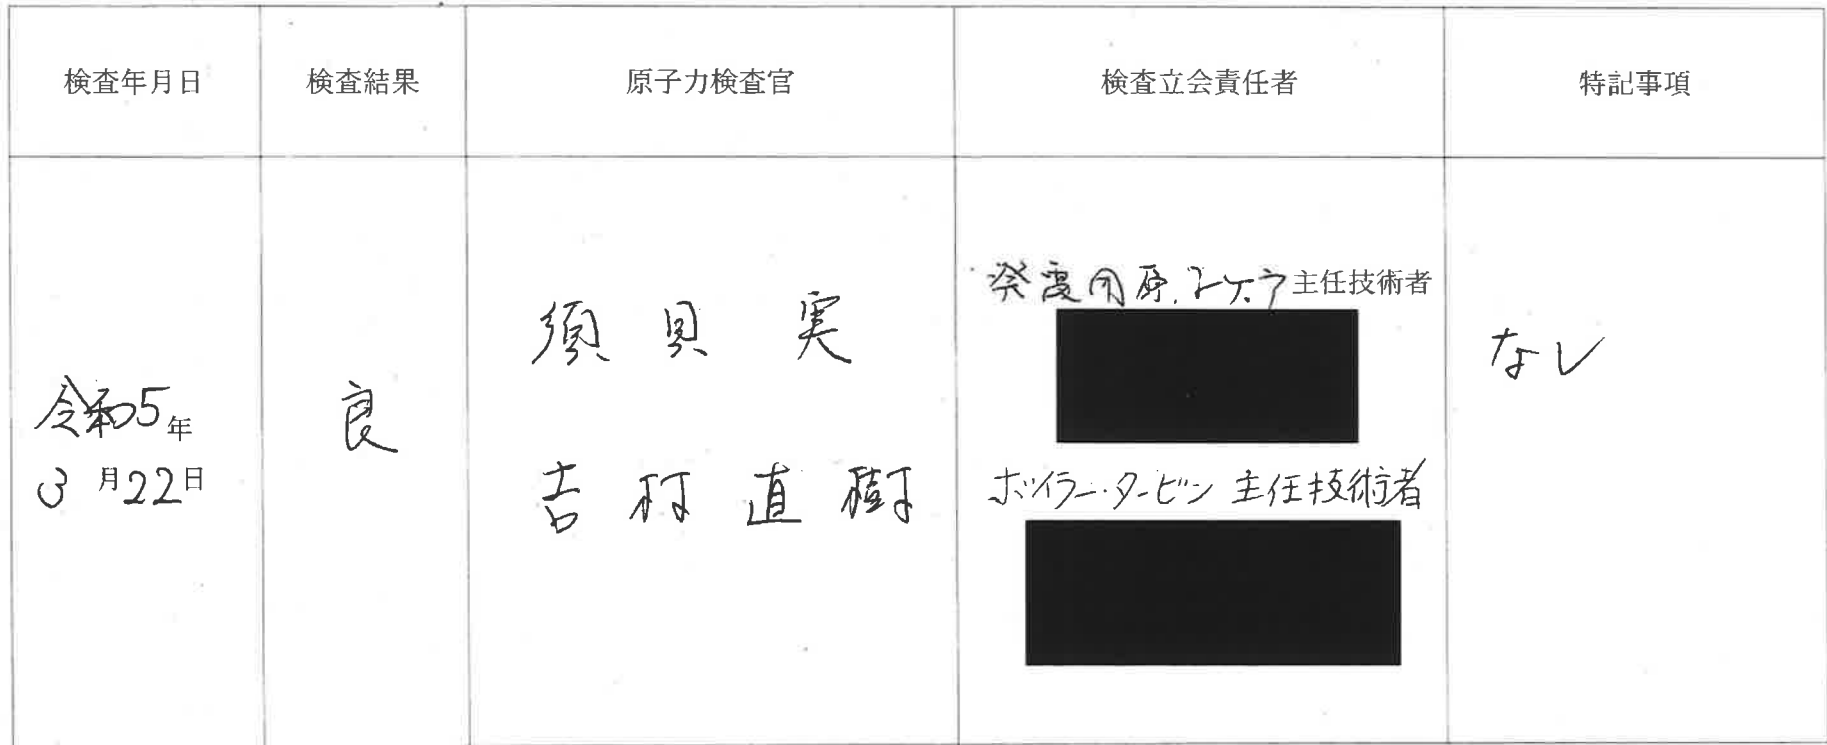 検査年月日
検査結果
原子力検査官
検査立会責任者
特記事項
令和5年
3月22日
良
須貝 実
吉村直樹
発電用原子炉主任技術者
ボイラー・タービン 主任技術者
なし